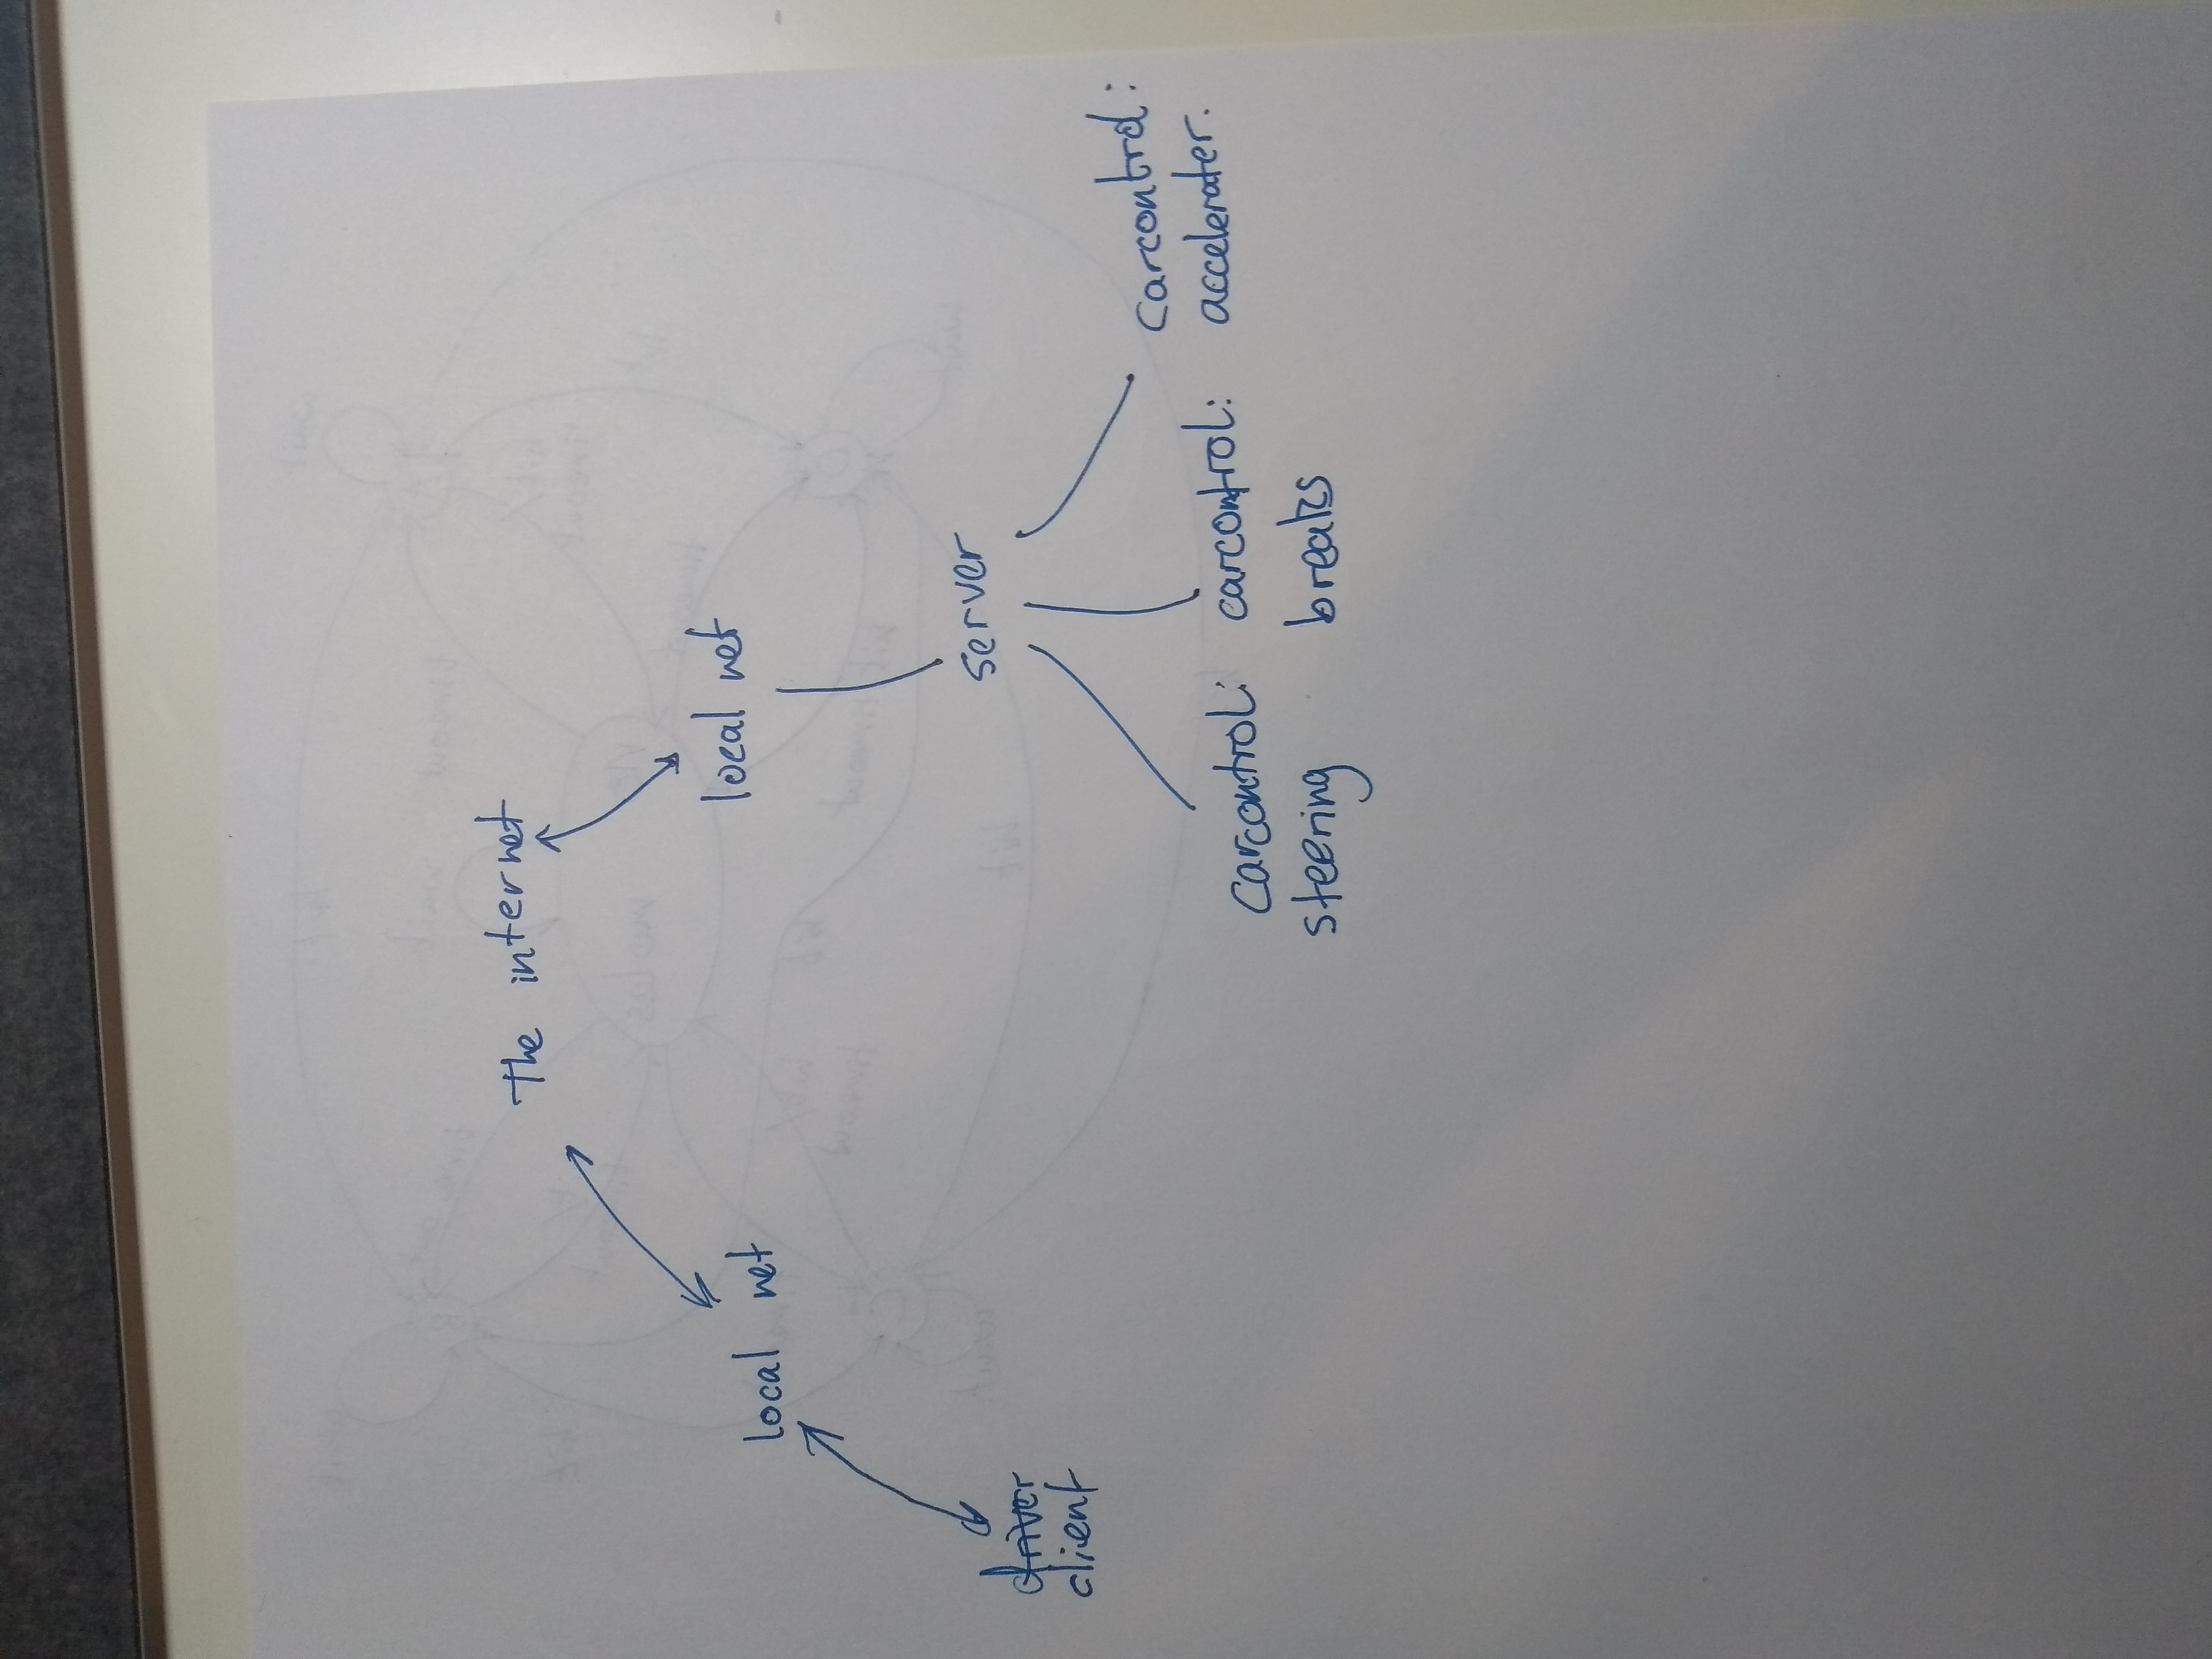 The internet
local net
local net
driver
client
server
carcontrol:
steering
carcontrol:
breaks
carcontrol:
accelerater.